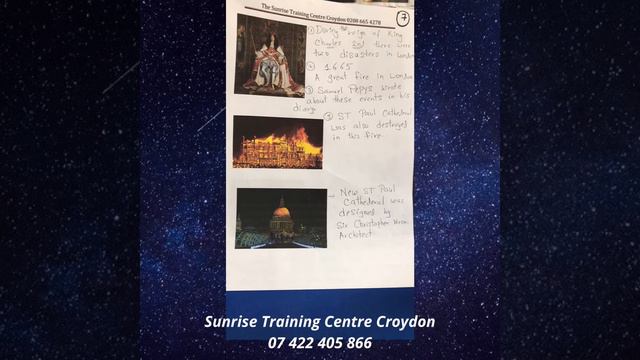 The Sunrise Training Centre Croydon 0208 665 4278
7
① During the reign of King
Charles 2nd there were
two disasters in London
② 1665
A great fire in London
③ Samuel Pepys wrote
about these events in his
diary
④ ST Paul Cathedral
was also destroyed
in this fire
→ New ST Paul
Cathedral was
designed by
Sir Christopher Wren
Architect
Sunrise Training Centre Croydon
07 422 405 866